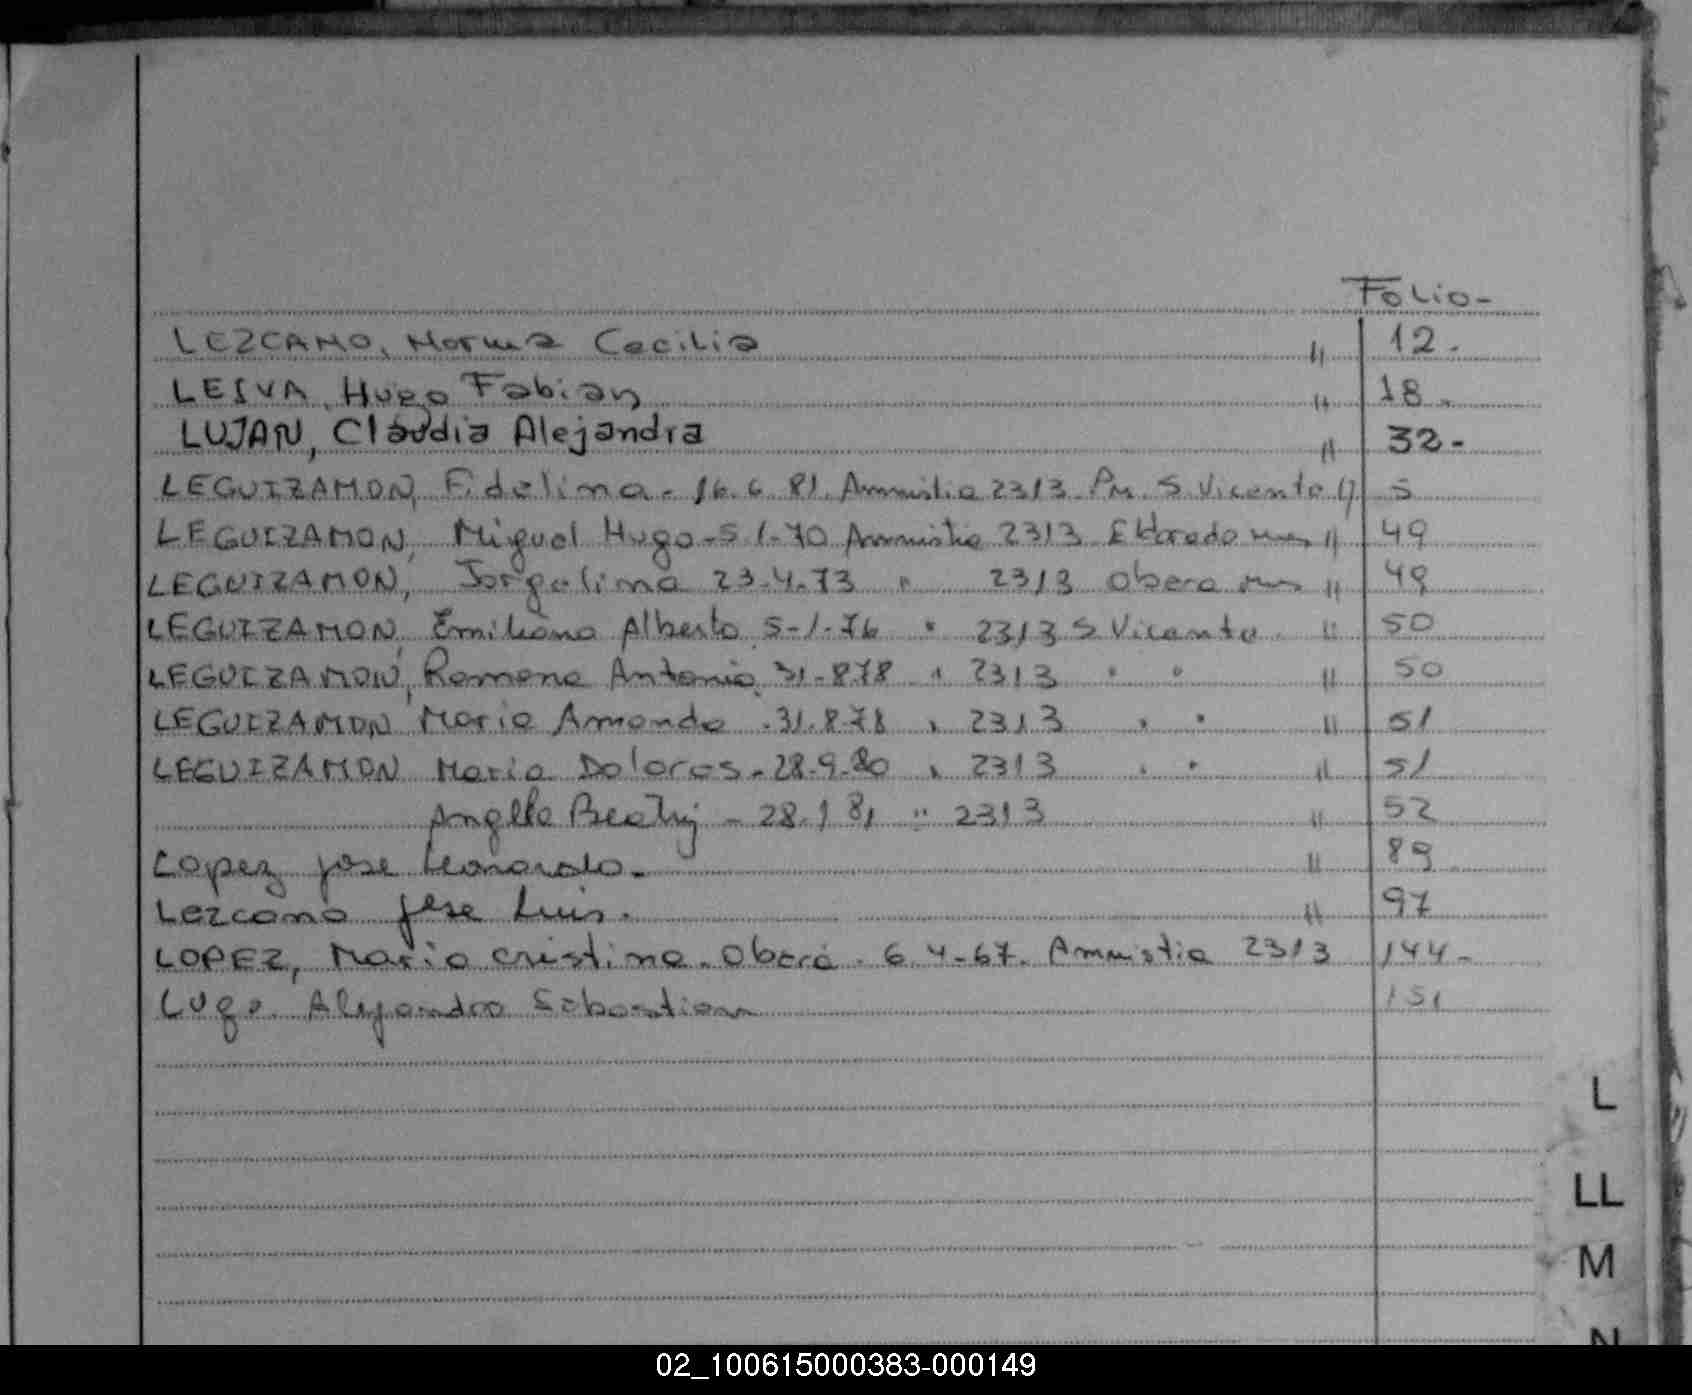 Folio-
LEZCANO, Norma Cecilia " 12.
LEIVA, Hugo Fabian " 18.
LUJAN, Claudia Alejandra " 32-
LEGUIZAMON, Fidelina - 16.6.81. Amnistia 2313. Pn. S. Vicente " 5
LEGUIZAMON, Miguel Hugo - 5.1.70 Amnistia 2313 Eldorado mns " 49
LEGUIZAMON, Jorgelina 23.4.73 " 2313 Obera mns " 49
LEGUIZAMON, Emiliano Alberto 5-1-76 " 2313 S Vicente " 50
LEGUIZAMON, Ramona Antonia 31-8-78 " 2313 " " " 50
LEGUIZAMON Maria Amanda 31.8.78 " 2313 " " " 51
LEGUIZAMON Maria Dolores - 28.9.80 " 2313 " " " 51
Beatriz - 28.1 81 " 2313 " 52
Lopez jose Leonardo. " 89
Lezcano jose Luis. " 97
LOPEZ, Maria cristina. Oberá. 6.4-67. Amnistia 2313 144-
Lugo. Alejandro Sebastian 151
L
LL
M
N
02_100615000383-000149